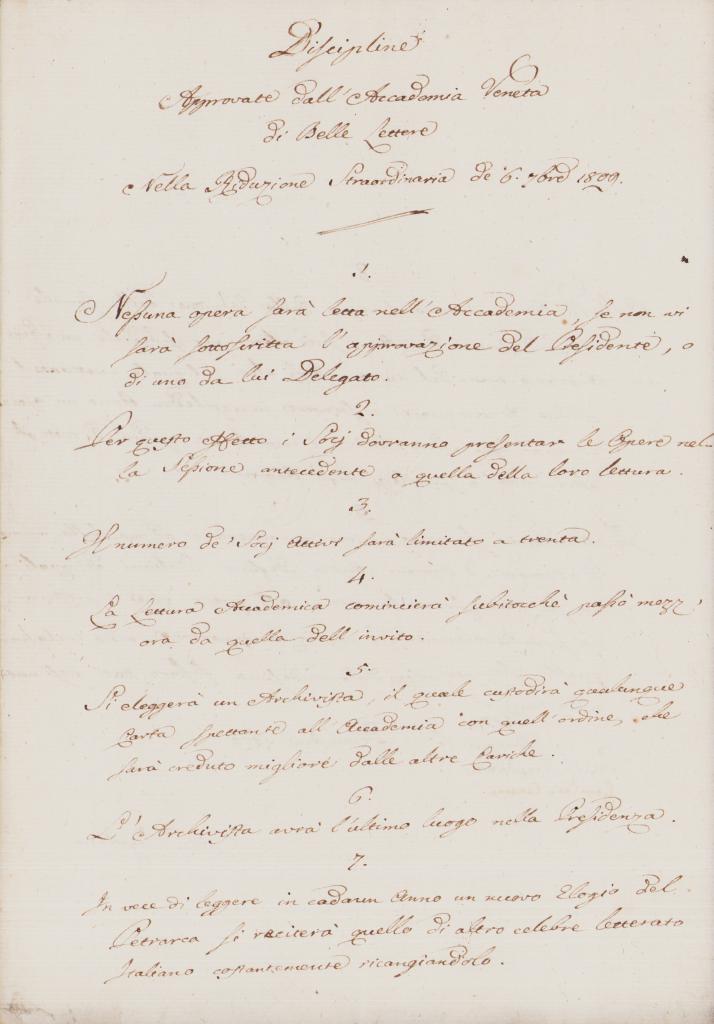 Discipline
Approvate dall'Accademia Veneta
di Belle Lettere
Nella Riduzione Straordinaria de' 6. 7bre 1809.
1.
Nessuna opera sarà letta nell'Accademia, se non vi
sarà sottoscritta l'approvazione del Presidente, o
di uno da lui Delegato.
2.
Per questo effetto i Socj dovranno presentar le Opere nel-
la Sessione antecedente a quella della loro lettura.
3.
Il numero de' Socj Attivi sarà limitato a trenta.
4.
La Lettura Accademica comincierà subitocchè passò mezz'
ora da quella dell'invito.
5.
Si eleggerà un Archivista, il quale custodirà qualunque
Carta spettante all'Accademia con quell'ordine, che
sarà creduto migliore dalle altre Cariche.
6.
L'Archivista avrà l'ultimo luogo nella Presidenza.
7.
In vece di leggere in cadaun Anno un nuovo Elogio del
Petrarca si reciterà quello di altro celebre letterato
Italiano costantemente ricangiandolo.